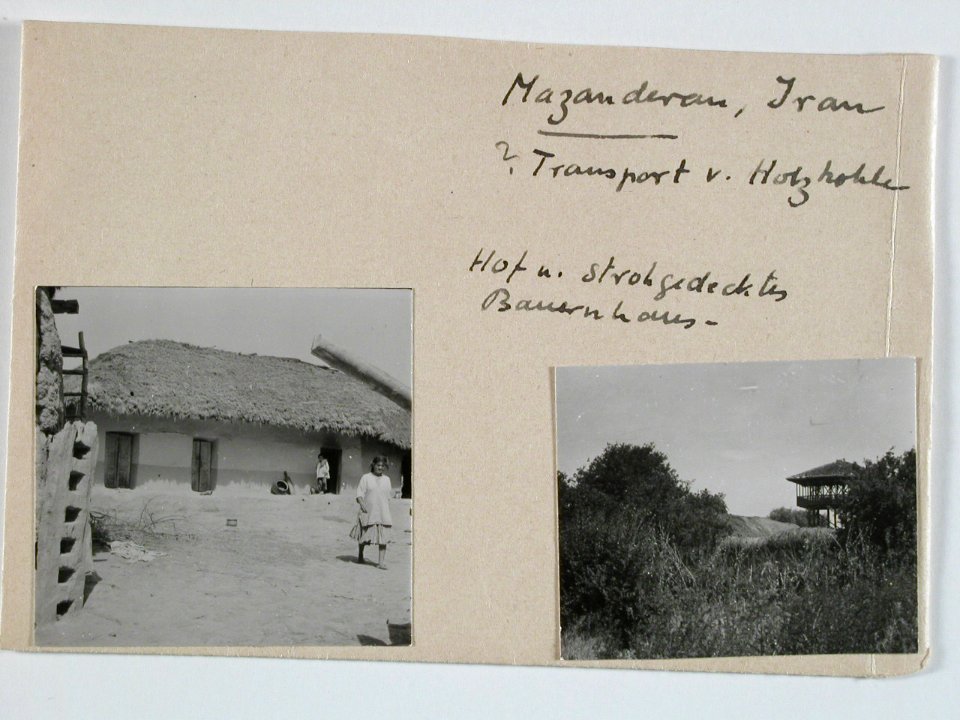 Mazanderan, Iran
? Transport v. Holzkohle
Hof u. strohgedecktes
Bauernhaus-